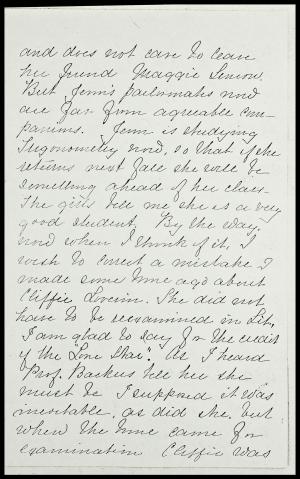 and does not care to leave
her friend Maggie Senior.
But Jenn's parlormates now
are far from agreeable com-
panions. Jenn is studying
Trigonometry now, so that if she
returns next fall she will be
something ahead of her class.
The girls tell me she is a very
good student. By the way,
now when I think of it, I
wish to correct a mistake I
made some time ago about
Cliffie. She did not
have to be reexamined in Lit.
I am glad to say for the credit
of the Lone Star. As I heard
Prof. Backus tell her she
must be I supposed it was
inevitable, as did she, but
when the time came for
examination Cliffie was